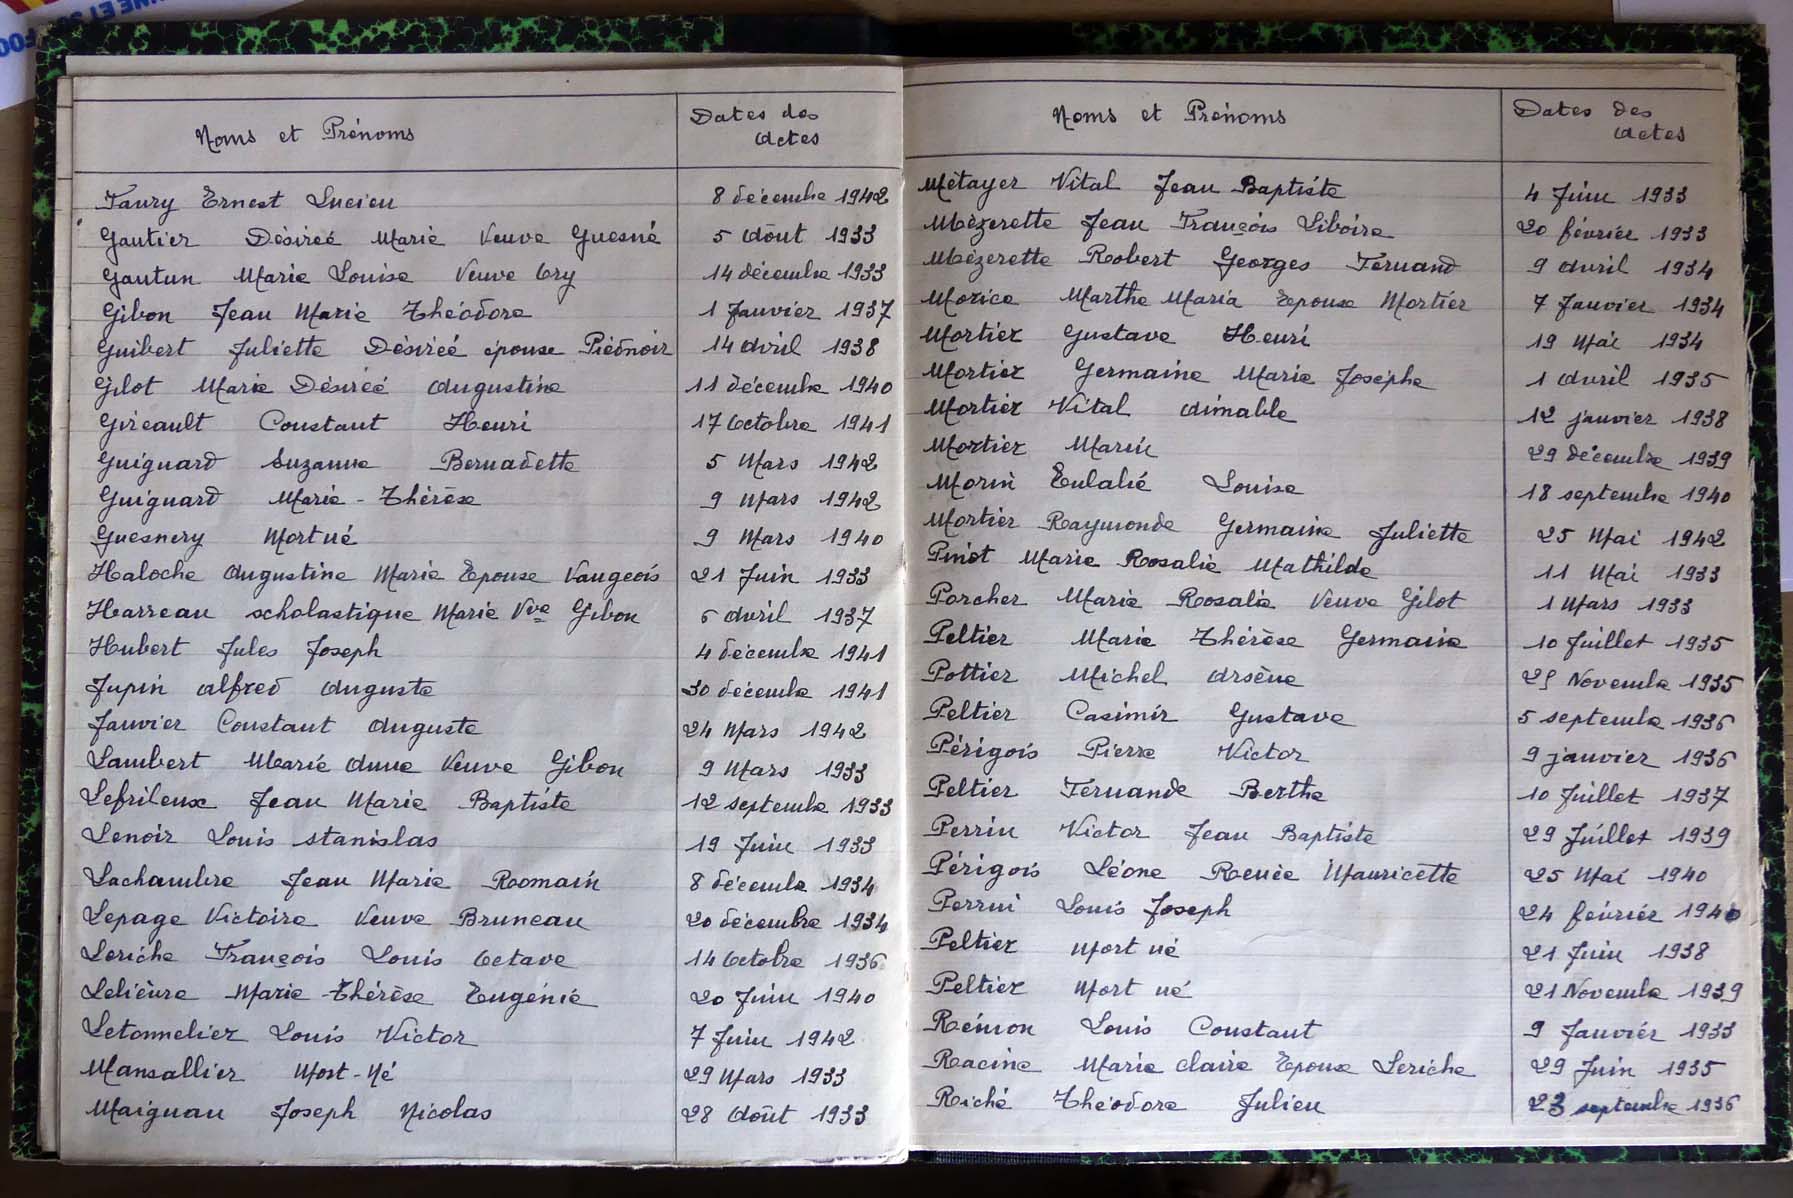 Noms et Prénoms Dates des actes
Faury Ernest Lucien 8 décembre 1942
Gautier Désireé Marie Veuve Guesné 5 Août 1933
Gautun Marie Louise Veuve Cry 14 décembre 1933
Gibon Jean Marie Théodore 1 Janvier 1937
Guibert Juliette Désireé épouse Piednoir 14 avril 1938
Gilot Marie Désireé Augustine 11 décembre 1940
Gireault Constant Henri 17 Octobre 1941
Guignard Suzanne Bernadette 5 Mars 1942
Guignard Marie-Thérèse 9 Mars 1942
Guesnery Mort né 9 Mars 1940
Haloche Augustine Marie Epouse Vaugeois 21 Juin 1933
Harreau scholastique Marie Vve Gibon 6 avril 1937
Hubert Jules Joseph 4 décembre 1941
Jupin Alfred Auguste 30 décembre 1941
Janvier Constant Auguste 24 Mars 1942
Lambert Marie Anne Veuve Gibon 9 Mars 1933
Lefrileux Jean Marie Baptiste 12 septembre 1933
Lenoir Louis stanislas 19 Juin 1933
Lachambre Jean Marie Romain 8 décembre 1934
Lepage Victoire Veuve Bruneau 20 décembre 1934
Leriche François Louis Octave 14 Octobre 1936
Lelièvre Marie-Thérèse Eugénie 20 Juin 1940
Letonnelier Louis Victor 7 Juin 1942
Mansallier Mort-Né 29 Mars 1933
Maignan Joseph Nicolas 28 Août 1933
Noms et Prénoms Dates des actes
Métayer Vital Jean Baptiste 4 Juin 1933
Mézerette Jean François Liboire 20 février 1933
Mézerette Robert Georges Fernand 9 avril 1934
Morice Marthe Maria Epouse Mortier 7 Janvier 1934
Mortier Gustave Henri 19 Mai 1934
Mortier Germaine Marie Josèphe 1 avril 1935
Mortier Vital Aimable 12 janvier 1938
Mortier Marie 29 décembre 1939
Morin Eulalie Louise 18 septembre 1940
Mortier Raymonde Germaine Juliette 25 Mai 1942
Pinot Marie Rosalie Mathilde 11 Mai 1933
Porcher Marie Rosalie Veuve Gilot 1 Mars 1933
Peltier Marie Thérèse Germaine 10 Juillet 1935
Pottier Michel Arsène Novembre 1935
Peltier Casimir Gustave 5 septembre 1936
Périgois Pierre Victor 9 janvier 1936
Peltier Fernande Berthe 10 Juillet 1937
Perrin Victor Jean Baptiste 29 Juillet 1939
Périgois Léone Renée Mauricette 25 Mai 1940
Perrin Louis Joseph 24 février 1940
Peltier Mort né 21 Juin 1938
Peltier Mort né 21 Novembre 1939
Rémon Louis Constant 9 Janvier 1933
Racine Marie claire Epouse Leriche 29 Juin 1935
Riché Théodore Julien 23 septembre 1936